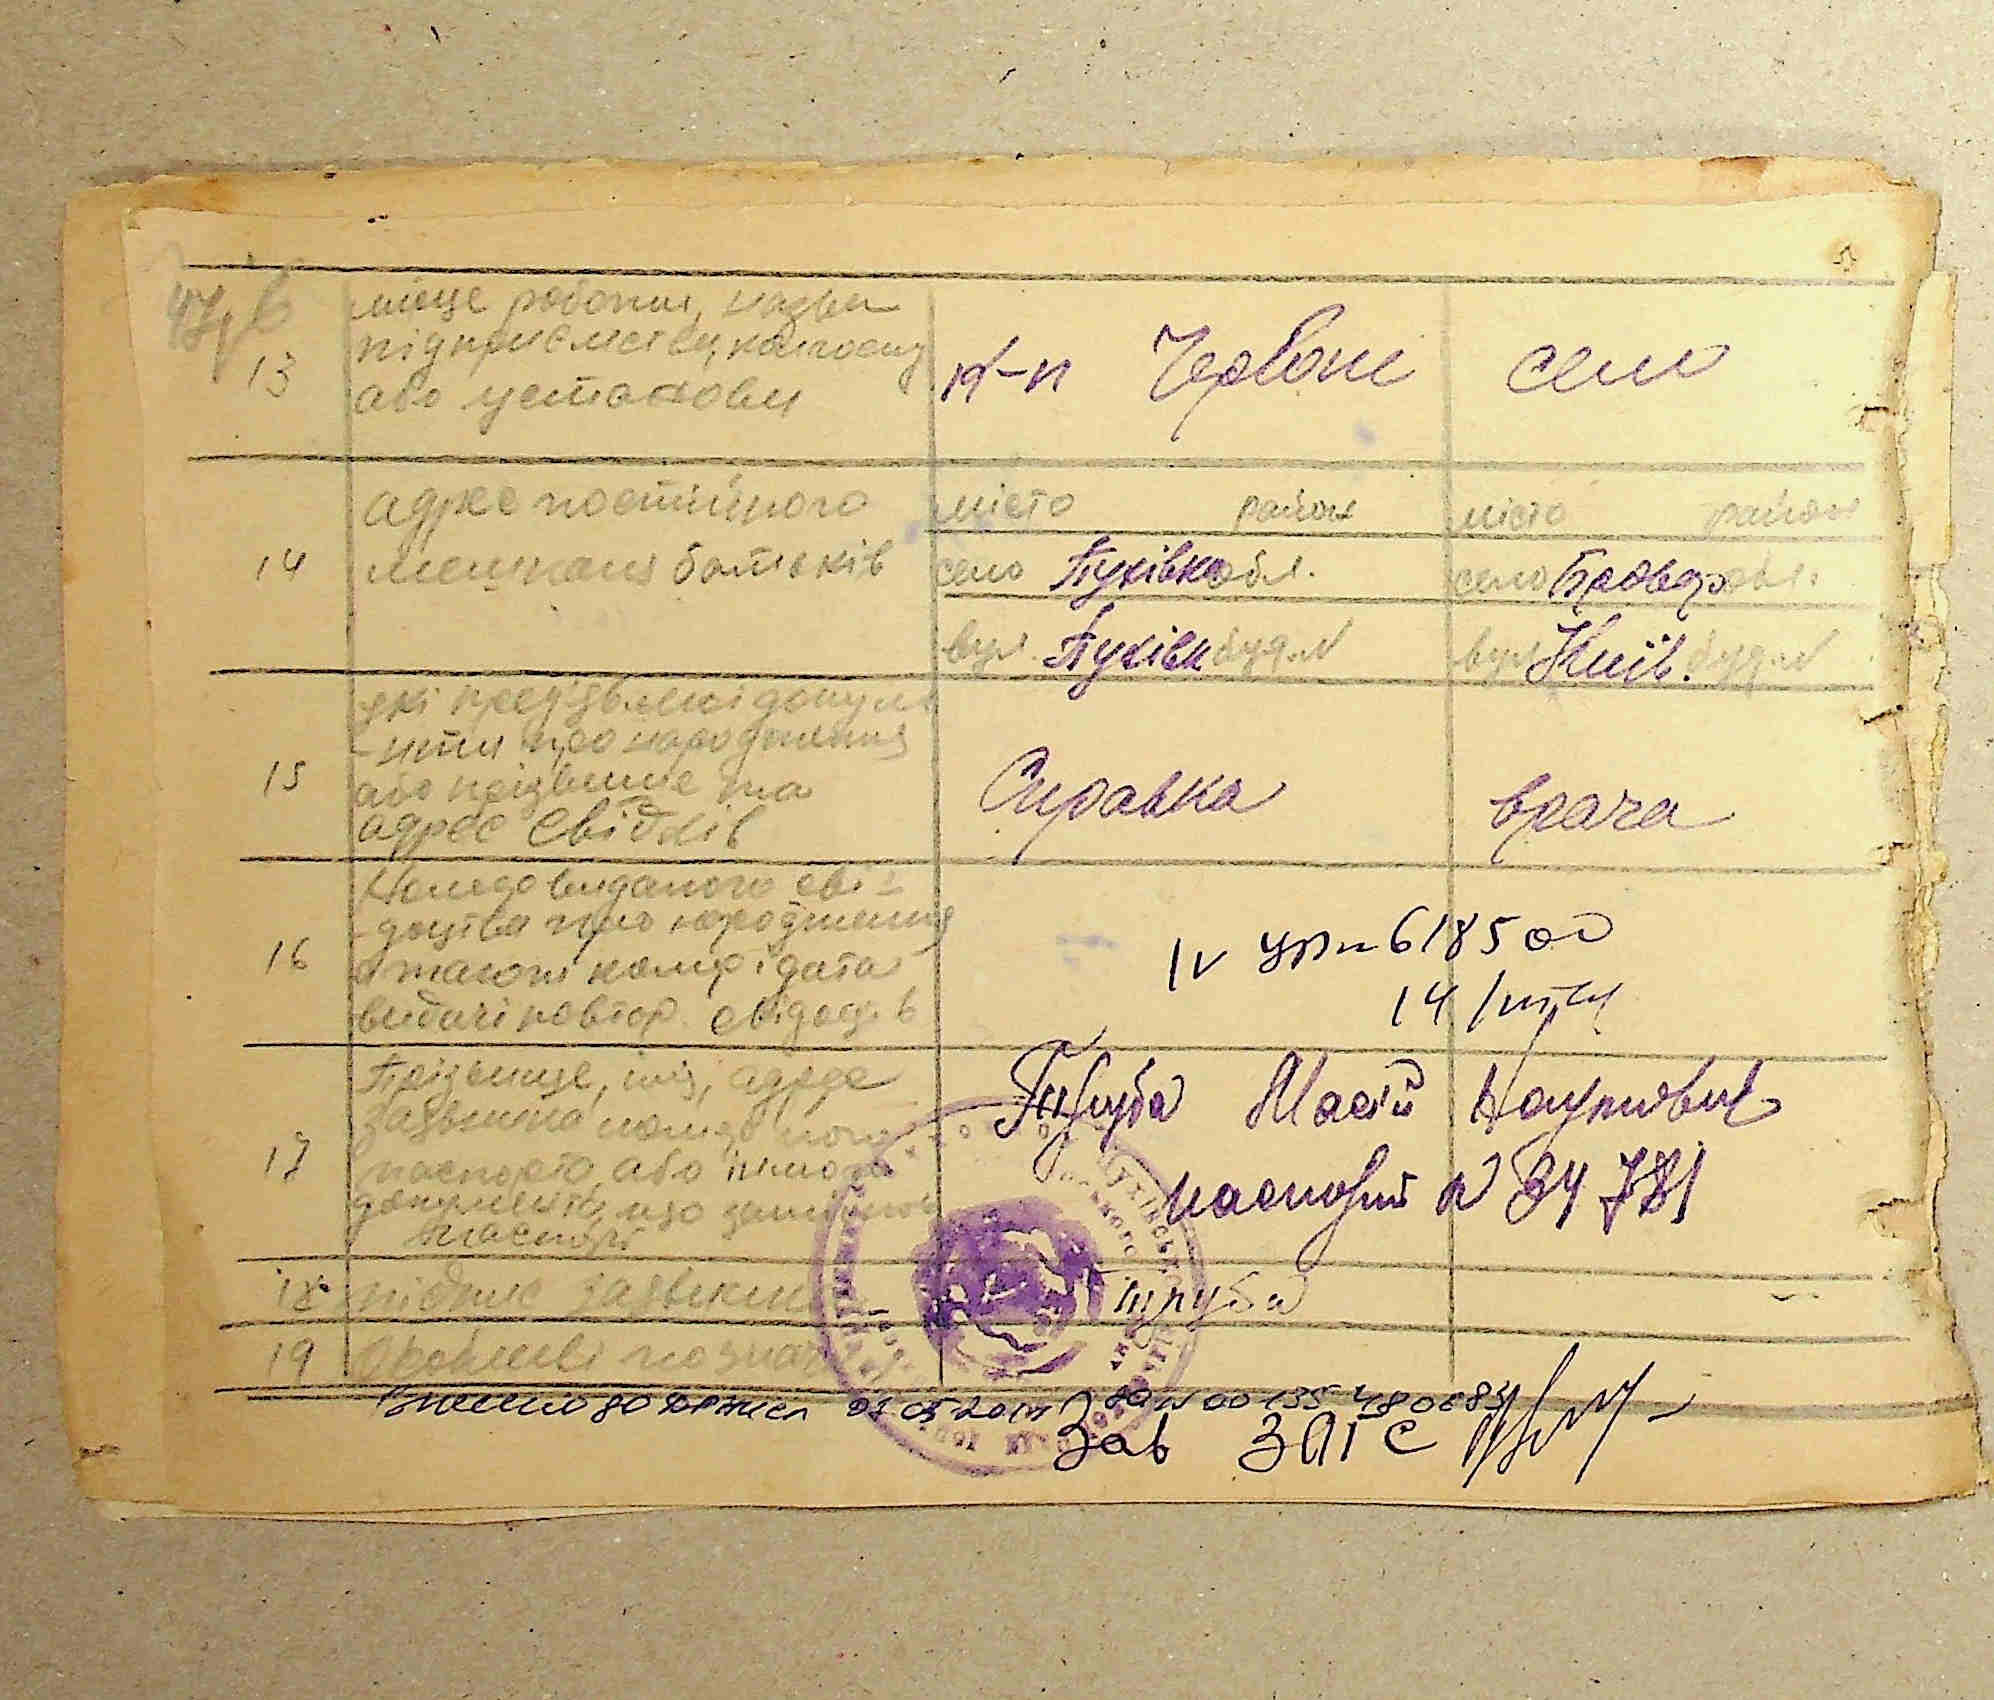 13 місце роботи, назва
підприємства, колгоспу
або установи
к-п Червоне село
14 адрес постійного
мешкання батьків
місто район місто район
село Пухівка обл. село Бровар обл.
вул. Пухівка буд. N вул Київ. буд. N
15 які пред'явлені докуме
-нти про народження
або прізвище та
адрес свідків
Справка врача
16 Номер виданого сві-
-доцтва про народження
а також номер і дата
видачі повтор. свідоцтв
IV 618500
14
17 Прізвище, ім'я, адрес
заявника номер його
паспорта, або іншого
документа, що замінює
паспорт
Труба Масій Наумович
паспорт N 34 781
18 підпис заявника Труба
19 Особливі познач
Внесено до 2011 N 00135480683
Зав ЗАГС